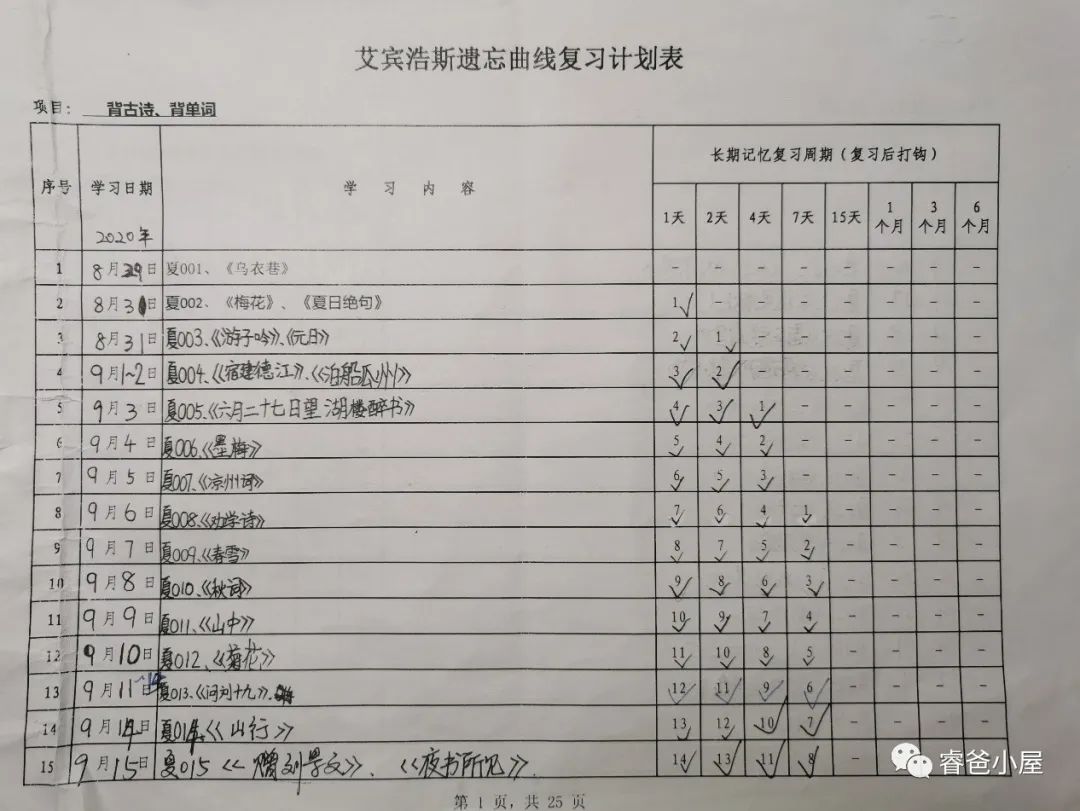 艾宾浩斯遗忘曲线复习计划表
项目: 背古诗、背单词
序号 学习日期 2020年 学 习 内 容 长期记忆复习周期（复习后打钩）
1天 2天 4天 7天 15天 1个月 3个月 6个月
1 8月29日 夏001、《乌衣巷》 - - - - - - - -
2 8月30日 夏002、《梅花》、《夏日绝句》 1√ - - - - - - -
3 8月31日 夏003、《游子吟》、《元日》 2√ 1√ - - - - - -
4 9月1~2日 夏004、《宿建德江》、《泊船瓜州》 3√ 2√ - - - - - -
5 9月3日 夏005、《六月二十七日望湖楼醉书》 4√ 3√ 1√ - - - - -
6 9月4日 夏006、《墨梅》 5√ 4√ 2√ - - - - -
7 9月5日 夏007、《凉州词》 6√ 5√ 3√ - - - - -
8 9月6日 夏008、《劝学诗》 7√ 6√ 4√ 1√ - - - -
9 9月7日 夏009、《春雪》 8√ 7√ 5√ 2√ - - - -
10 9月8日 夏010、《秋词》 9√ 8√ 6√ 3√ - - - -
11 9月9日 夏011、《山中》 10√ 9√ 7√ 4√ - - - -
12 9月10日 夏012、《菊花》 11√ 10√ 8√ 5√ - - - -
13 9月11日 夏013、《问刘十九》、 12√ 11√ 9√ 6√ - - - -
14 9月14日 夏014、《山行》 13√ 12√ 10√ 7√ - - - -
15 9月15日 夏015《赠刘景文》、《夜书所见》. 14√ 13√ 11√ 8√ - - - -
第 1 页，共 25 页
睿爸小屋